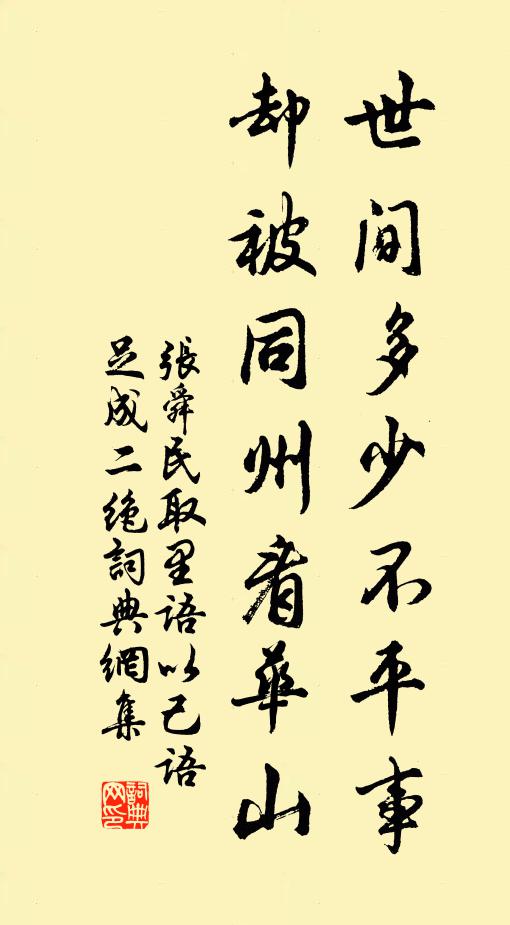 世间多少不平事
却被同州看華山
張舜民取里语以己语
足成二绝詞典網集
詞典网印